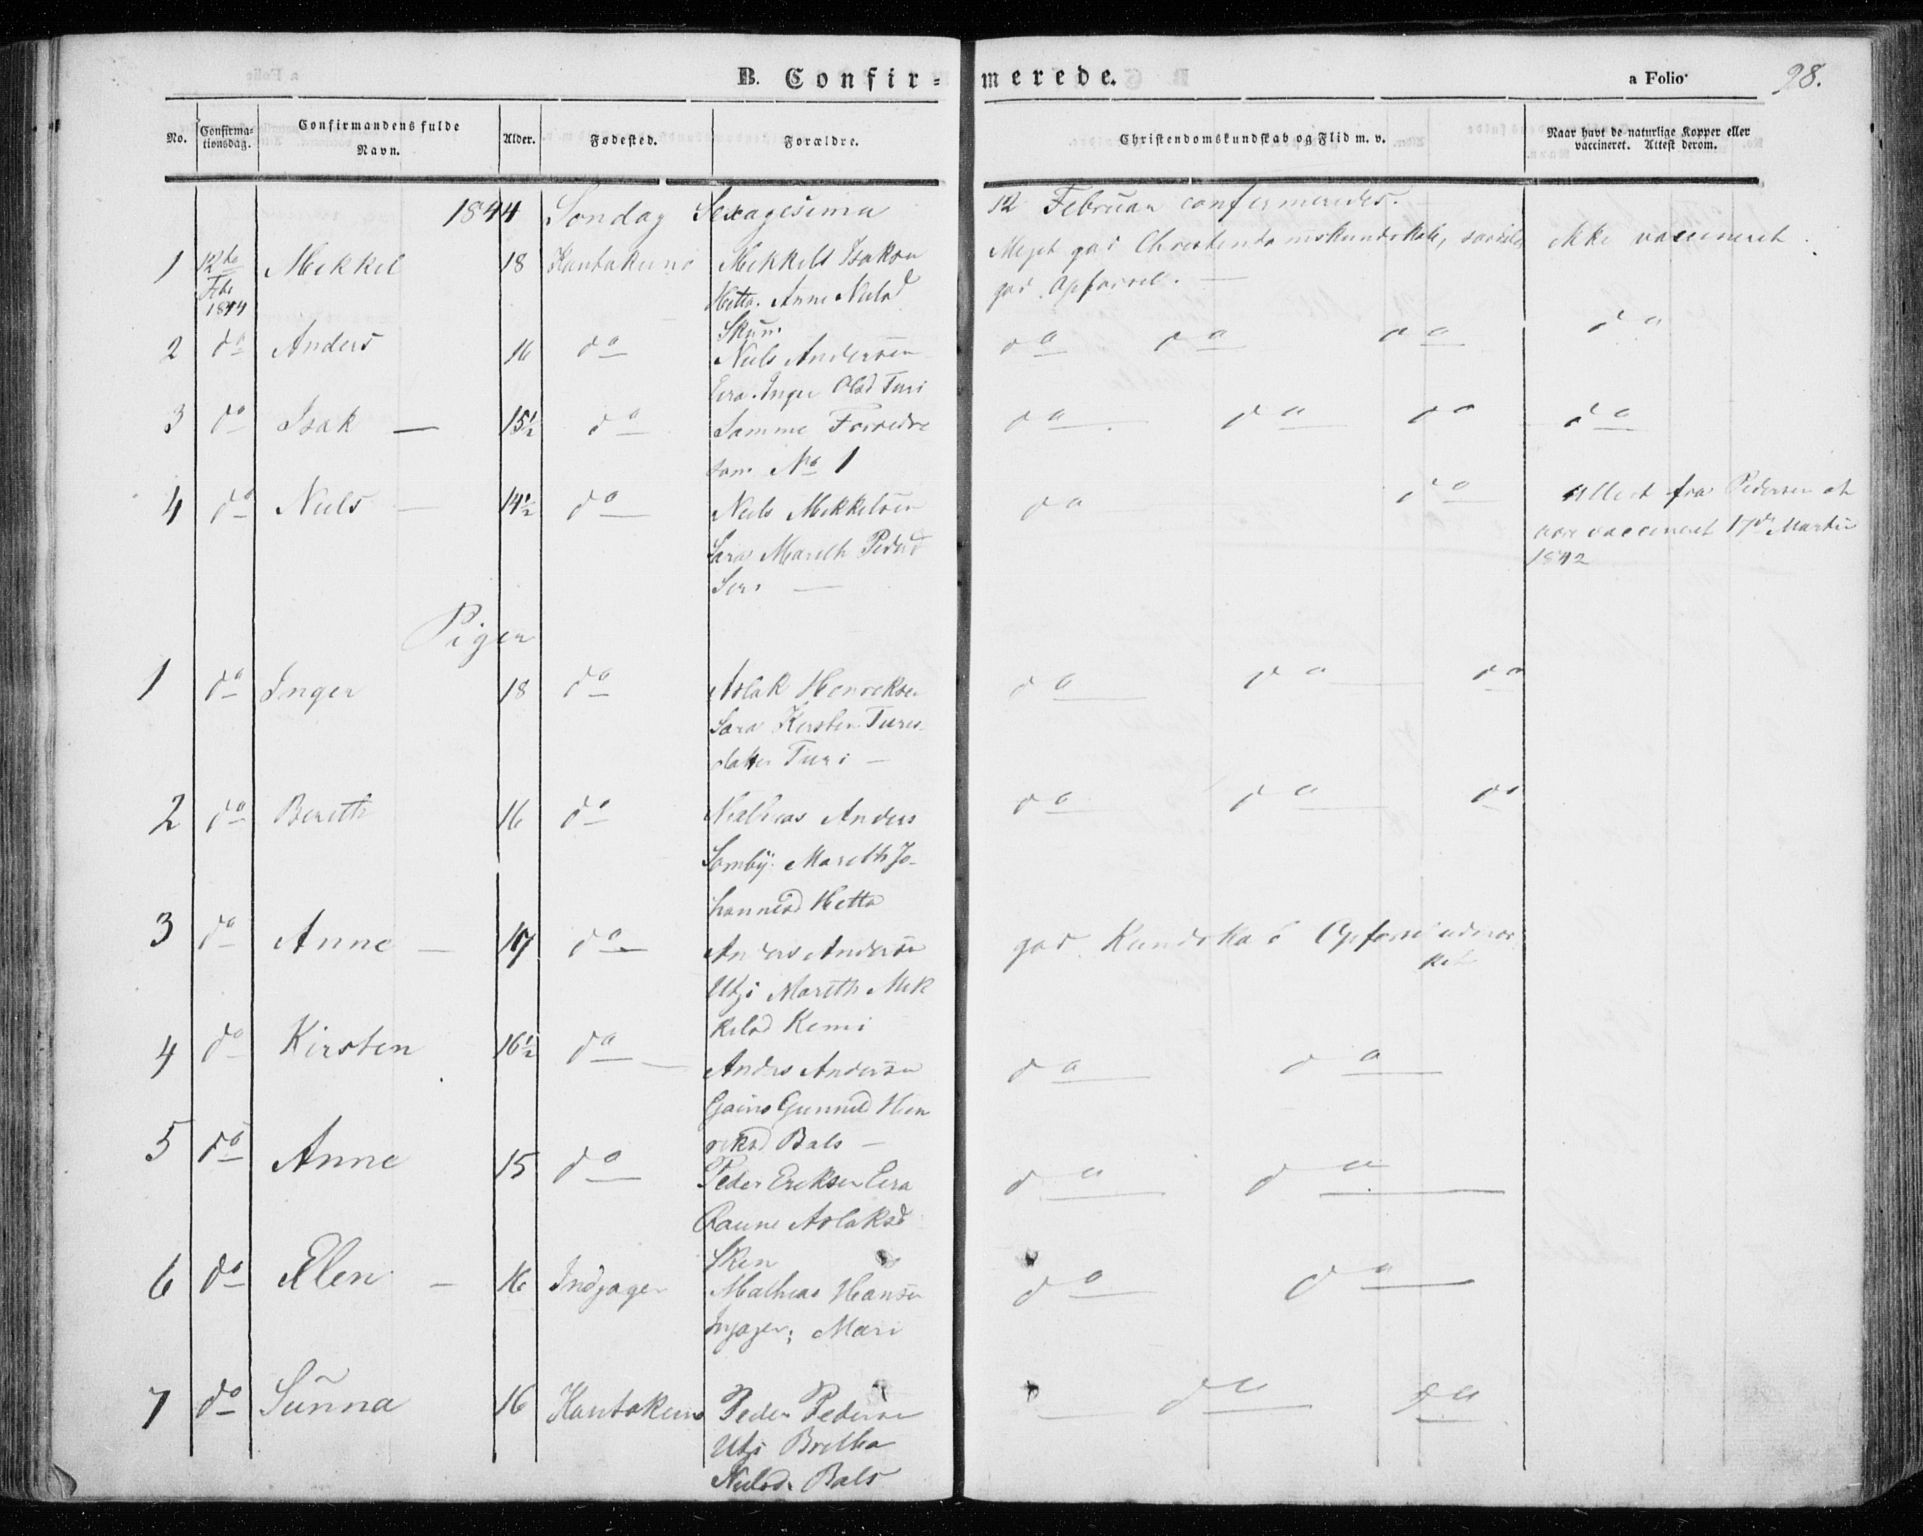 B. Confirmerede.
a Folio 98.
No. Confirmationsdag. Confirmandens fulde Navn. Alder. Fødested. Forældre. Christendomskundskab og Flid m. v. Naar havt de naturlige Kopper eller vaccineret. Attest derom.
1844 Sondag Sexagesima 12 Februar confirmeredes.
1 12te Mekkel 18 Kautokeino Mekkels Isaksen Meget god Christendomskundskab, ikke vaccineret
1844 Hetta. Anne Nielsd god Opførsel. —
Skum
2 do Anders 16 do Niels Andersen do do do do
Eira. Inger Olsd Turi
3 do Isak — 15½ do Samme Forredre do do do do
som No 1
4 do Niels — 14½ do Niels Mikkelsen do do Attest fra Pedersen at
Sara Mareth Pedersd være vaccineret 17de Martii
Sara — 1842
Piger
1 do Inger 18 do Aslak Henreksen do do do
Sara Kersten Tures
datter Turi —
2 do Bereth 16 do Mathias Anders do do do
Somby. Mareth Jo-
hannesd Hetta
3 do Anne — 17 do Anders Andersen god Kundskab Opførsel udmær
Utsi Mareth Mik ket
kelsd Kemi
4 do Kirsten 16½ do Anders Andersen do do
Gaino Gunnild Hen
reksd Bals —
5 do Anne 15 do Peder Ereksen Eira do do
Raune Aslaksd
6 do Elen — 16 Indjager Mathias Hansen do do
Injager; Mari
7 do Sunna 16 Kautokeino Peder Pedersen do do
Utsi Bretha
Nielsd. Bals